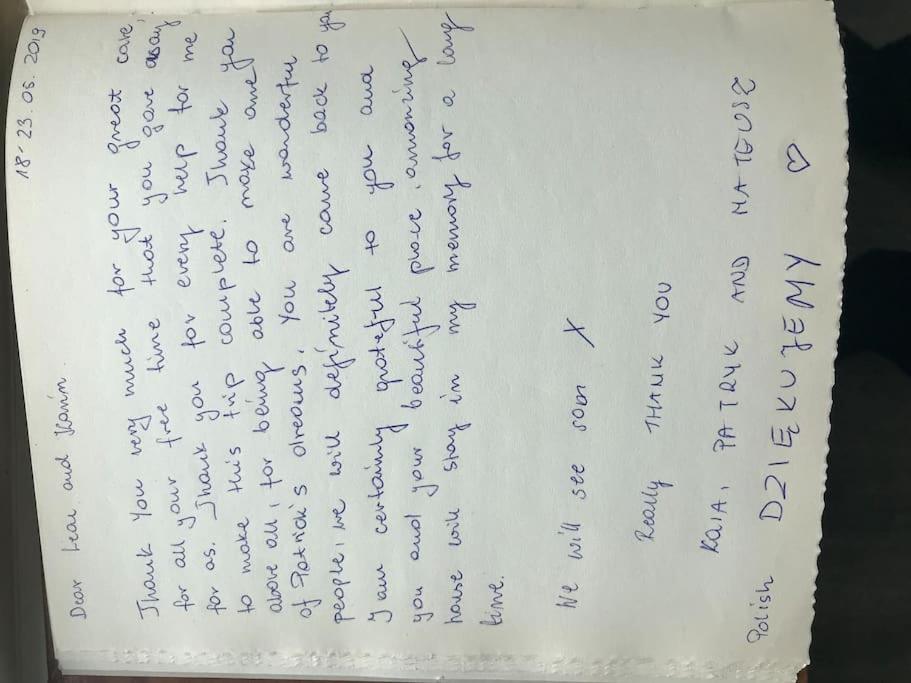 18-23.06.2019
Dear Lean and Karin.
Thank you very much for your great care,
for all your free time that you gave away
for as. Thank you for every help for me
to make this trip complete. Thank you
above all, for being able to make one
of Patrick's dreams. You are wonderful
people, we will definitely came back to you
I am certainly grateful to you and
you and your beautiful place, amonzing
house will stay in my memory for a long
time.
We will see som X
Really THANK YOU
KAJA, PATRYK AND MATEUSZ
Polish DZIĘKUJEMY ♡